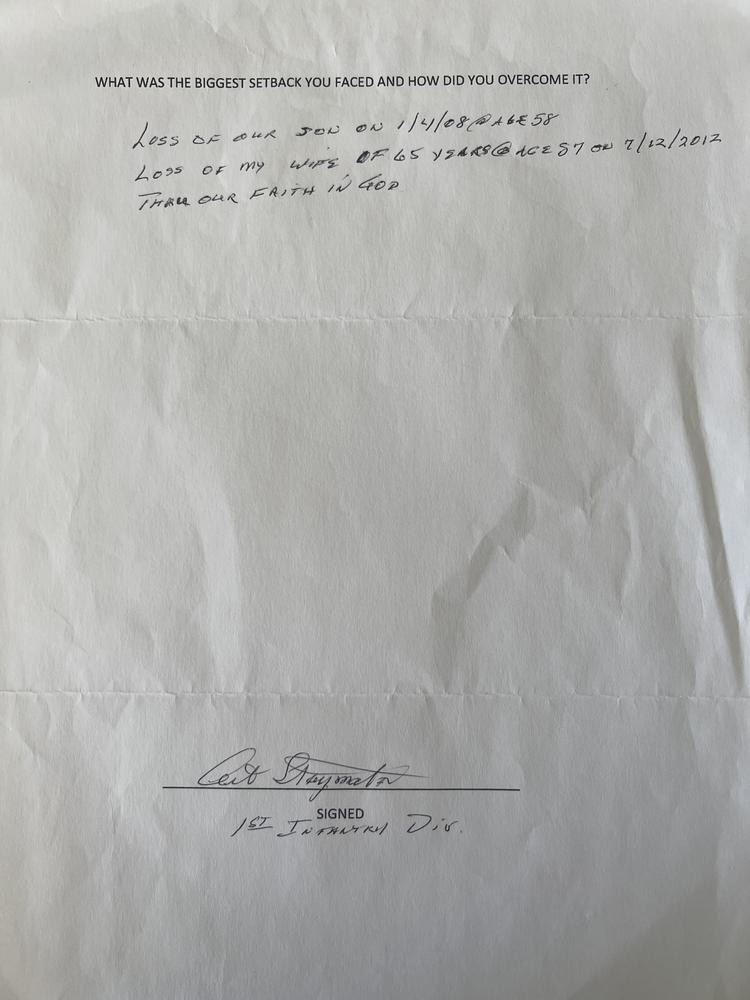 WHAT WAS THE BIGGEST SETBACK YOU FACED AND HOW DID YOU OVERCOME IT?
LOSS OF OUR SON ON 1/4/08 @ AGE 58
LOSS OF MY WIFE OF 65 YEARS @ AGE 87 ON 7/12/2012
THRU OUR FAITH IN GOD
SIGNED
1ST INFANTRY DIV.